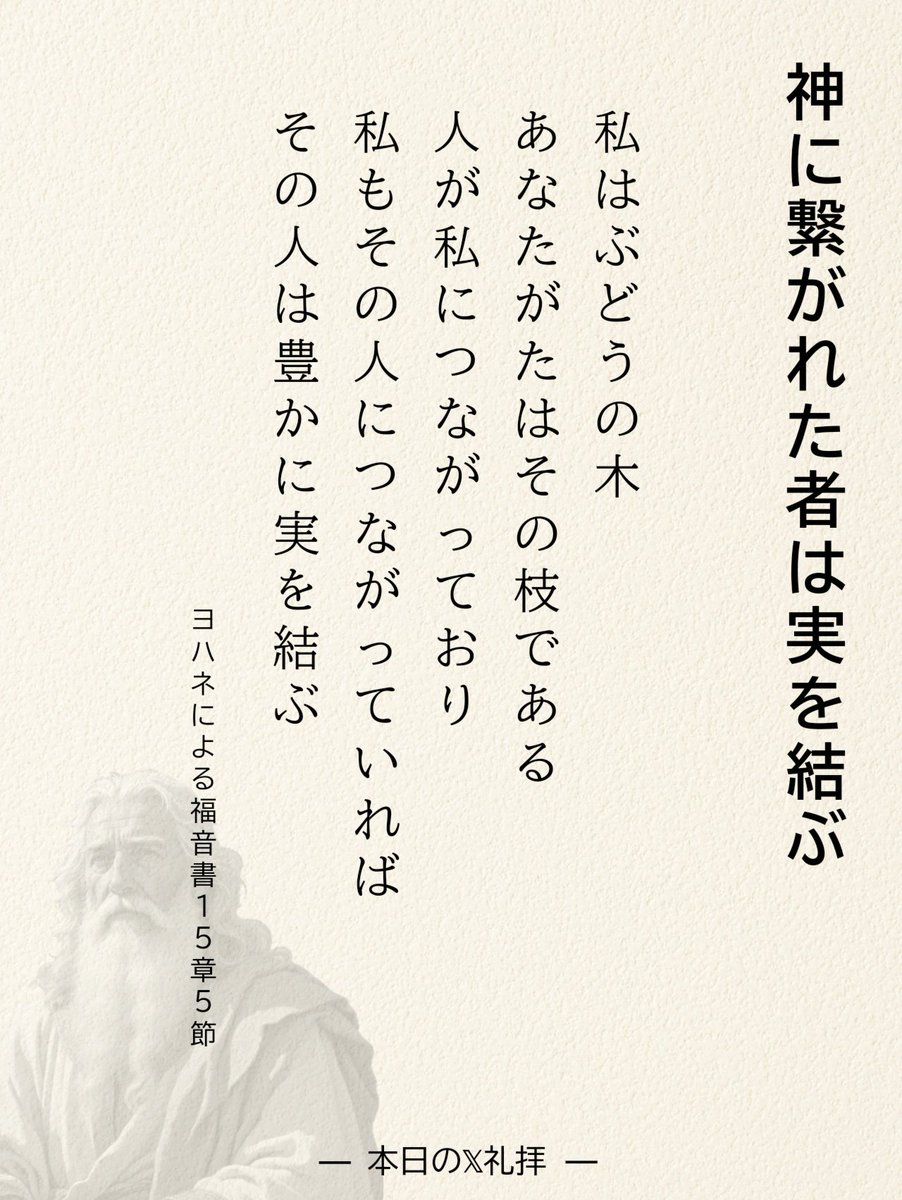 神に繋がれた者は実を結ぶ
私はぶどうの木
あなたがたはその枝である
人が私につながっており
私もその人につながっていれば
その人は豊かに実を結ぶ
ヨハネによる福音書１５章５節
― 本日の𝕏礼拝 ―